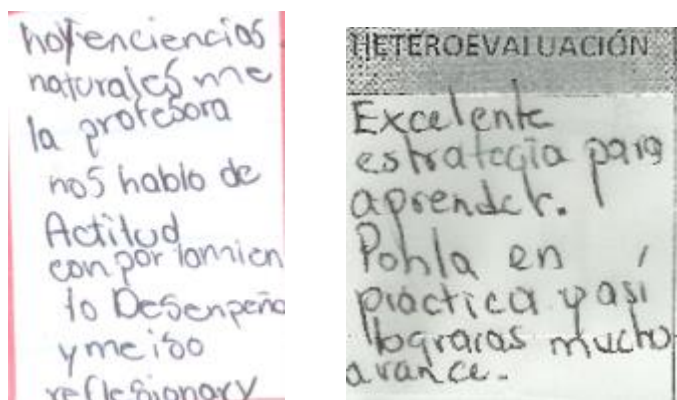 hoy enciencias
naturales me
la profesora
nos hablo de
Actitud
conportamien
to Desenpeño
y meiso
reflesionar y
HETEROEVALUACIÓN
Excelente
estrategia para
aprender.
Pohla en
práctica y así
lograras mucho
avance.